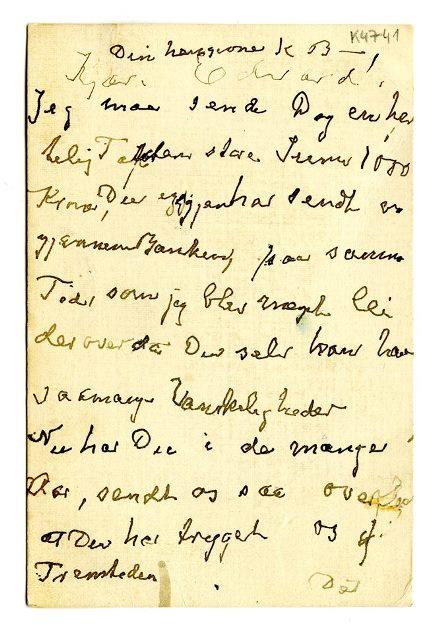 K4741
Din hengivne K B
Kjære Edvard!
Jeg maa sende Dig en her
telig Tak for den store Sum 1000
Kroner, Du igjen har sendt os
gjennem Banken, paa samme
Tid, som jeg blev meget lei
der over at Du selv har
saa mange Vanskeligheder
Nu har Du i de mange
Aar, sendt os saa over
at Du har trygget os
Fremtiden
Det